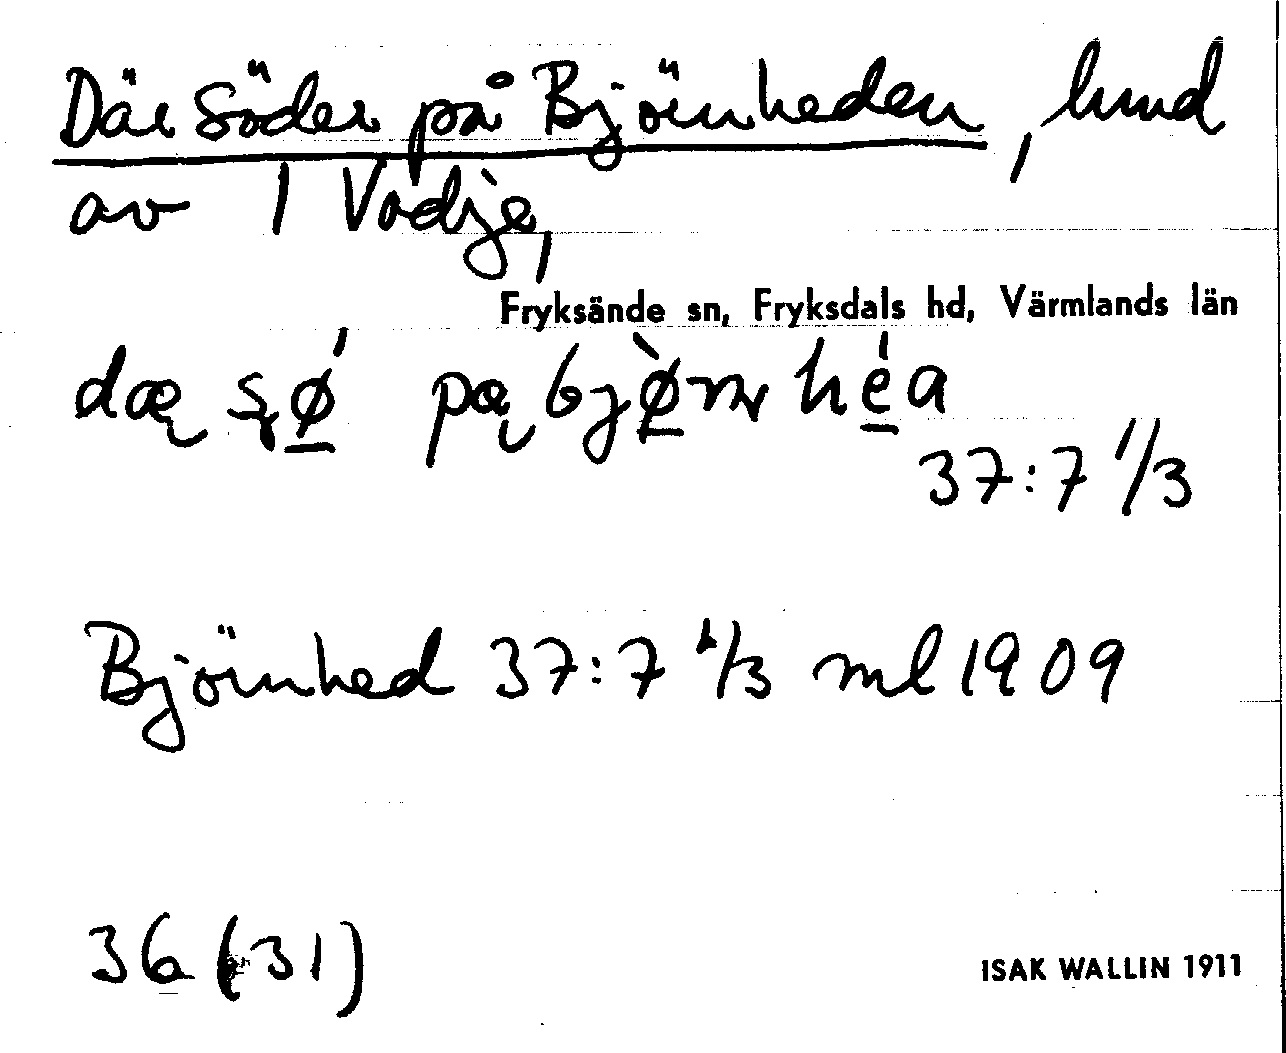 Där Söder på Björnheden, hmd
av 1 Vadje,
Fryksände sn, Fryksdals hd, Värmlands län
37:7 1/3
Björnhed 37:7 1/3 ml 1909
36 (31)
ISAK WALLIN 1911